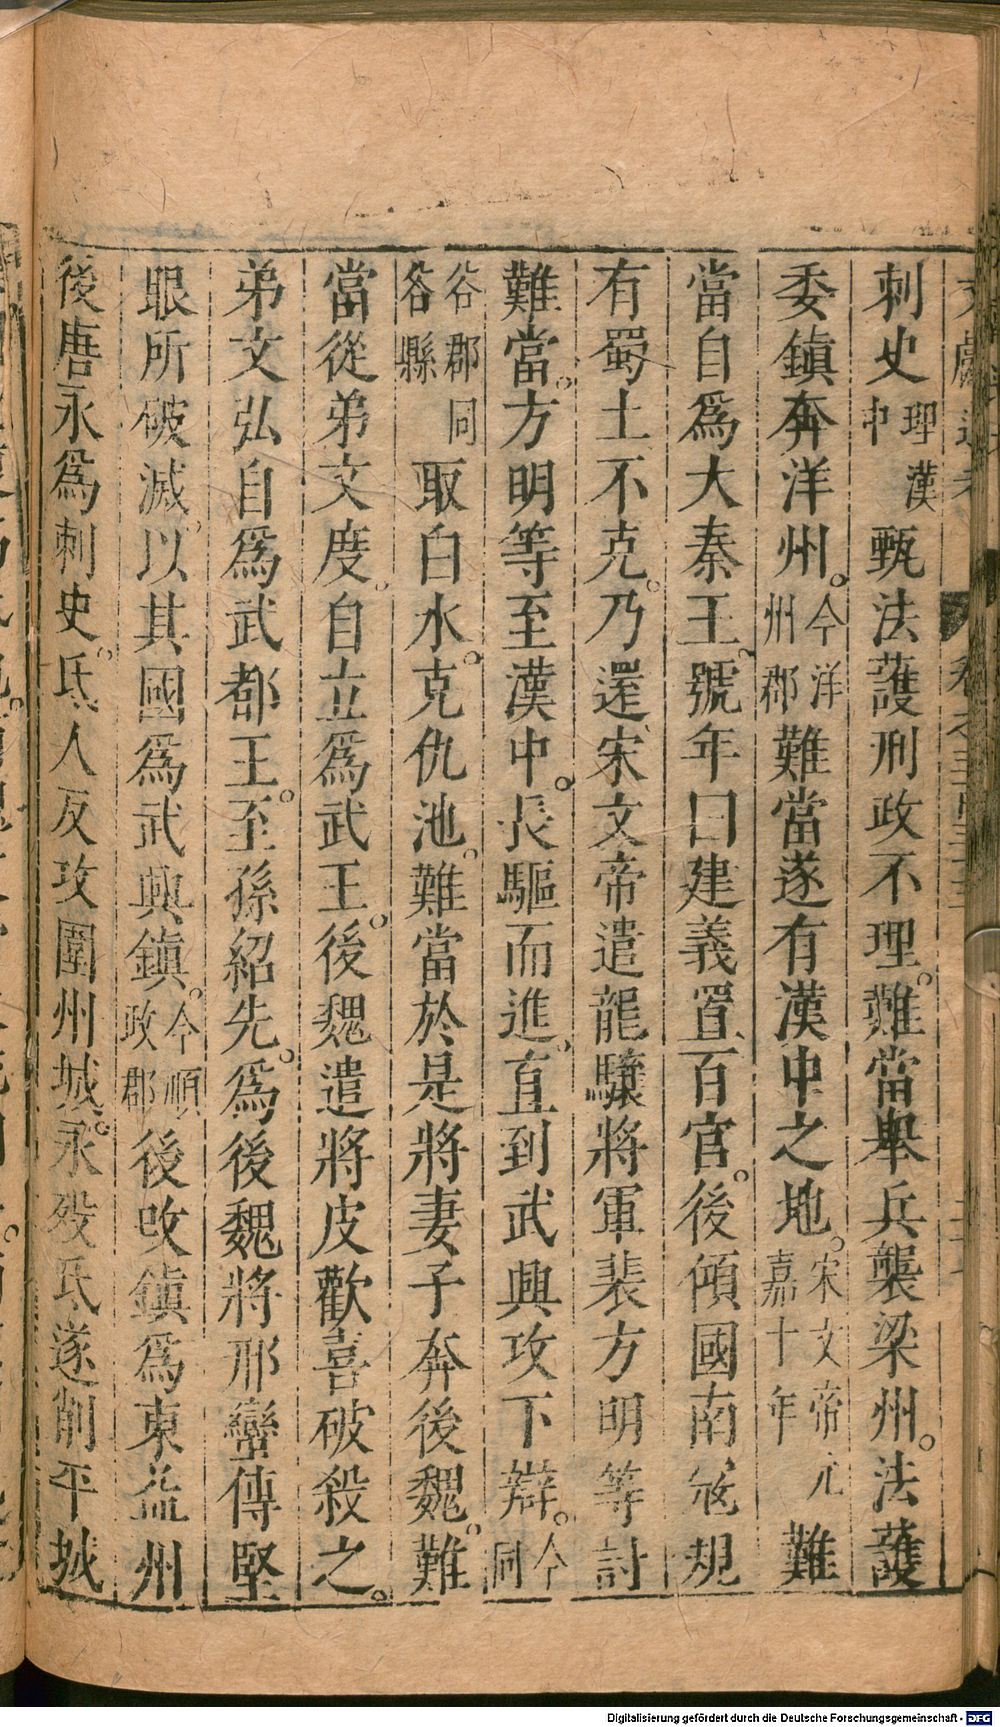 刺史理漢中甄法護刑政不理。難當舉兵襲梁州。法護
委鎮奔洋州。今洋州郡難當遂有漢中之地。宋文帝元嘉十年難
當自爲大秦王。號年曰建義置百官。後傾國南寇規
有蜀土不克。乃還宋文帝遣龍驤將軍裴方明等討
難當。方明等至漢中。長驅而進。直到武興攻下辯。今同
谷郡同谷縣取白水。克仇池。難當於是將妻子奔後魏。難
當從弟文度。自立爲武王。後魏遣將皮歡喜破殺之。
弟文弘自爲武都王。至孫紹先。爲後魏將邢巒傅堅
眼所破滅。以其國爲武興鎮。今順政郡後改鎮爲東益州
後唐永爲刺史。氐人反攻圍州城。永歿氐遂削平城
Digitalisierung gefördert durch die Deutsche Forschungsgemeinschaft - DFG